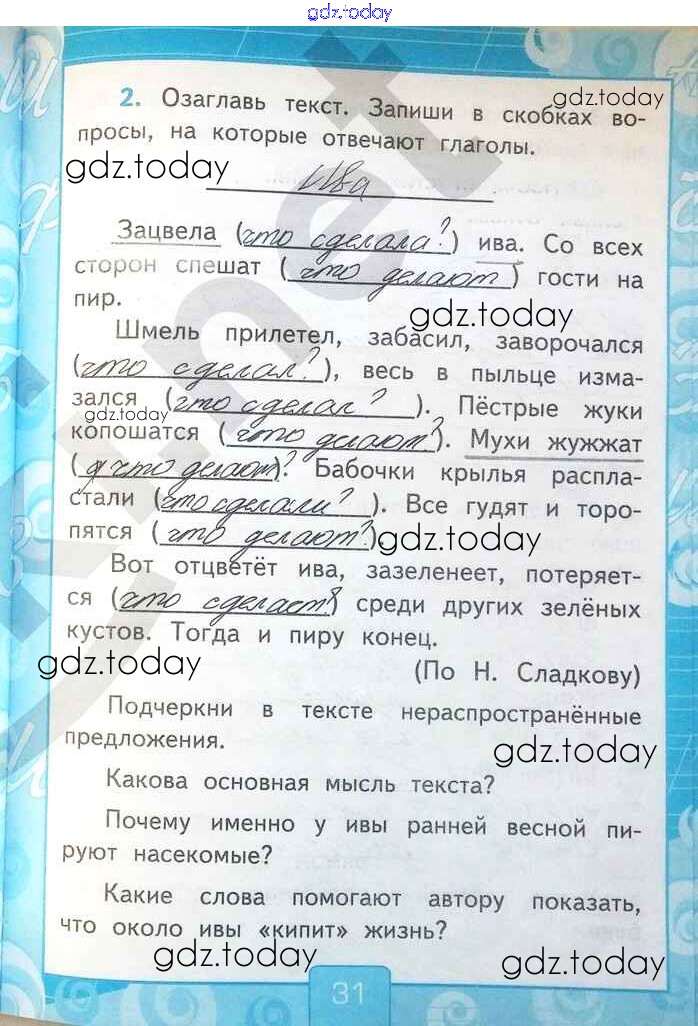 gdz.today
2. Озаглавь текст. Запиши в скобках во-
gdz.today
просы, на которые отвечают глаголы.
gdz.today
Ива
Зацвела (что сделала?) ива. Со всех
сторон спешат (что делают) гости на
пир.
gdz.today
Шмель прилетел, забасил, заворочался
(что сделал?), весь в пыльце изма-
зался (что сделал?). Пёстрые жуки
gdz.today
копошатся (что делают?). Мухи жужжат
(что делают)? Бабочки крылья распла-
стали (что сделали?). Все гудят и торо-
пятся (что делают?)
gdz.today
Вот отцветёт ива, зазеленеет, потеряет-
ся (что сделает?) среди других зелёных
кустов. Тогда и пиру конец.
gdz.today
(По Н. Сладкову)
Подчеркни в тексте нераспространённые
предложения.
gdz.today
Какова основная мысль текста?
Почему именно у ивы ранней весной пи-
руют насекомые?
Какие слова помогают автору показать,
что около ивы «кипит» жизнь?
gdz.today
gdz.today
31